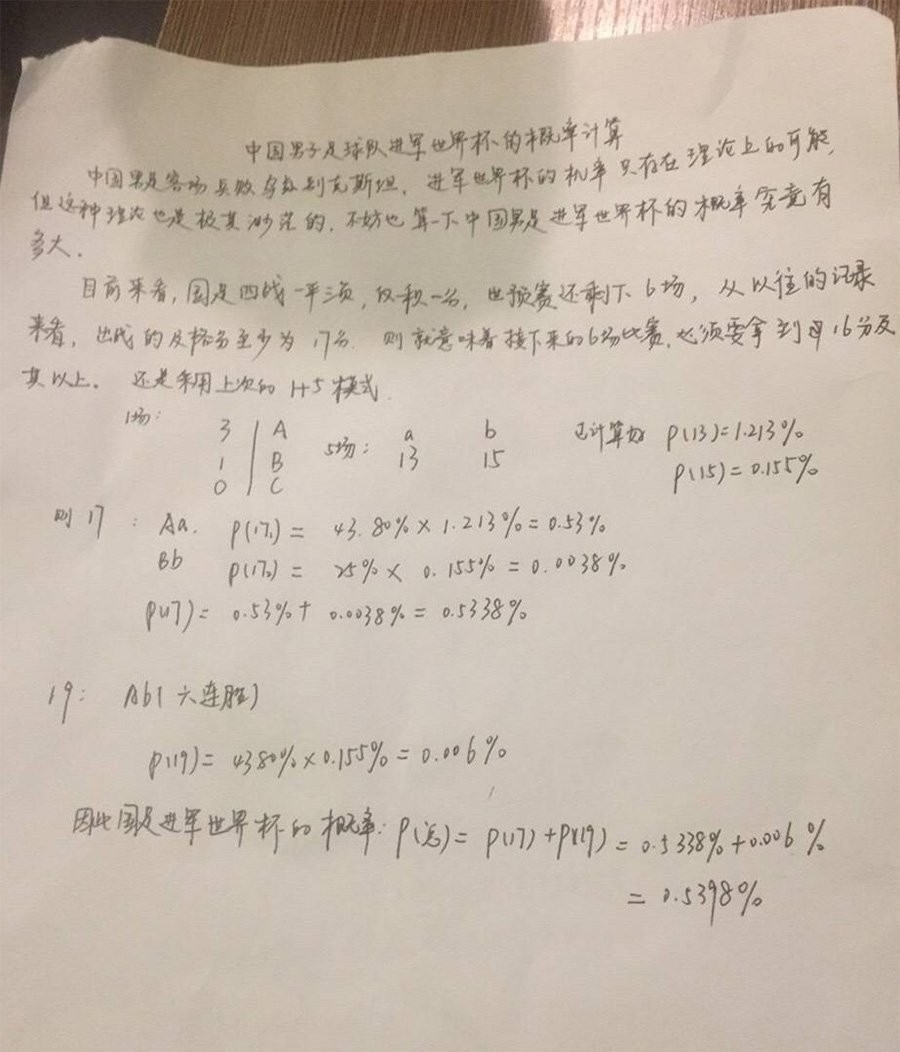 中国男子足球队进军世界杯的概率计算
中国男足客场负败乌兹别克斯坦,进军世界杯的机率只存在理论上的可能,
但这种理论也是极其渺茫的,不妨也算一下中国男足进军世界杯的概率究竟有
多大.
目前来看,国足四战一平三负,仅积一分,世预赛还剩下6场,从以往的记录
来看,出线的及格分至少为17分.则就意味着接下来的6场比赛,必须要拿到16分及
其以上.还是采用上次的1+5模式.
1场: 3 A 5场: a b 已计算好 P(13)=1.213%
1 B 13 15 P(15)=0.155%
0 C
则17: Aa. P(17₁)= 43.80%×1.213%=0.53%
Bb P(17₂)= 25%× 0.155%=0.0038%
P(17)= 0.53%+0.0038%=0.5338%
19: Ab(六连胜)
P(19)= 4380%×0.155%=0.006%
因此国足进军世界杯的概率:P(总)= P(17)+P(19)=0.5338%+0.006%
= 0.5398%